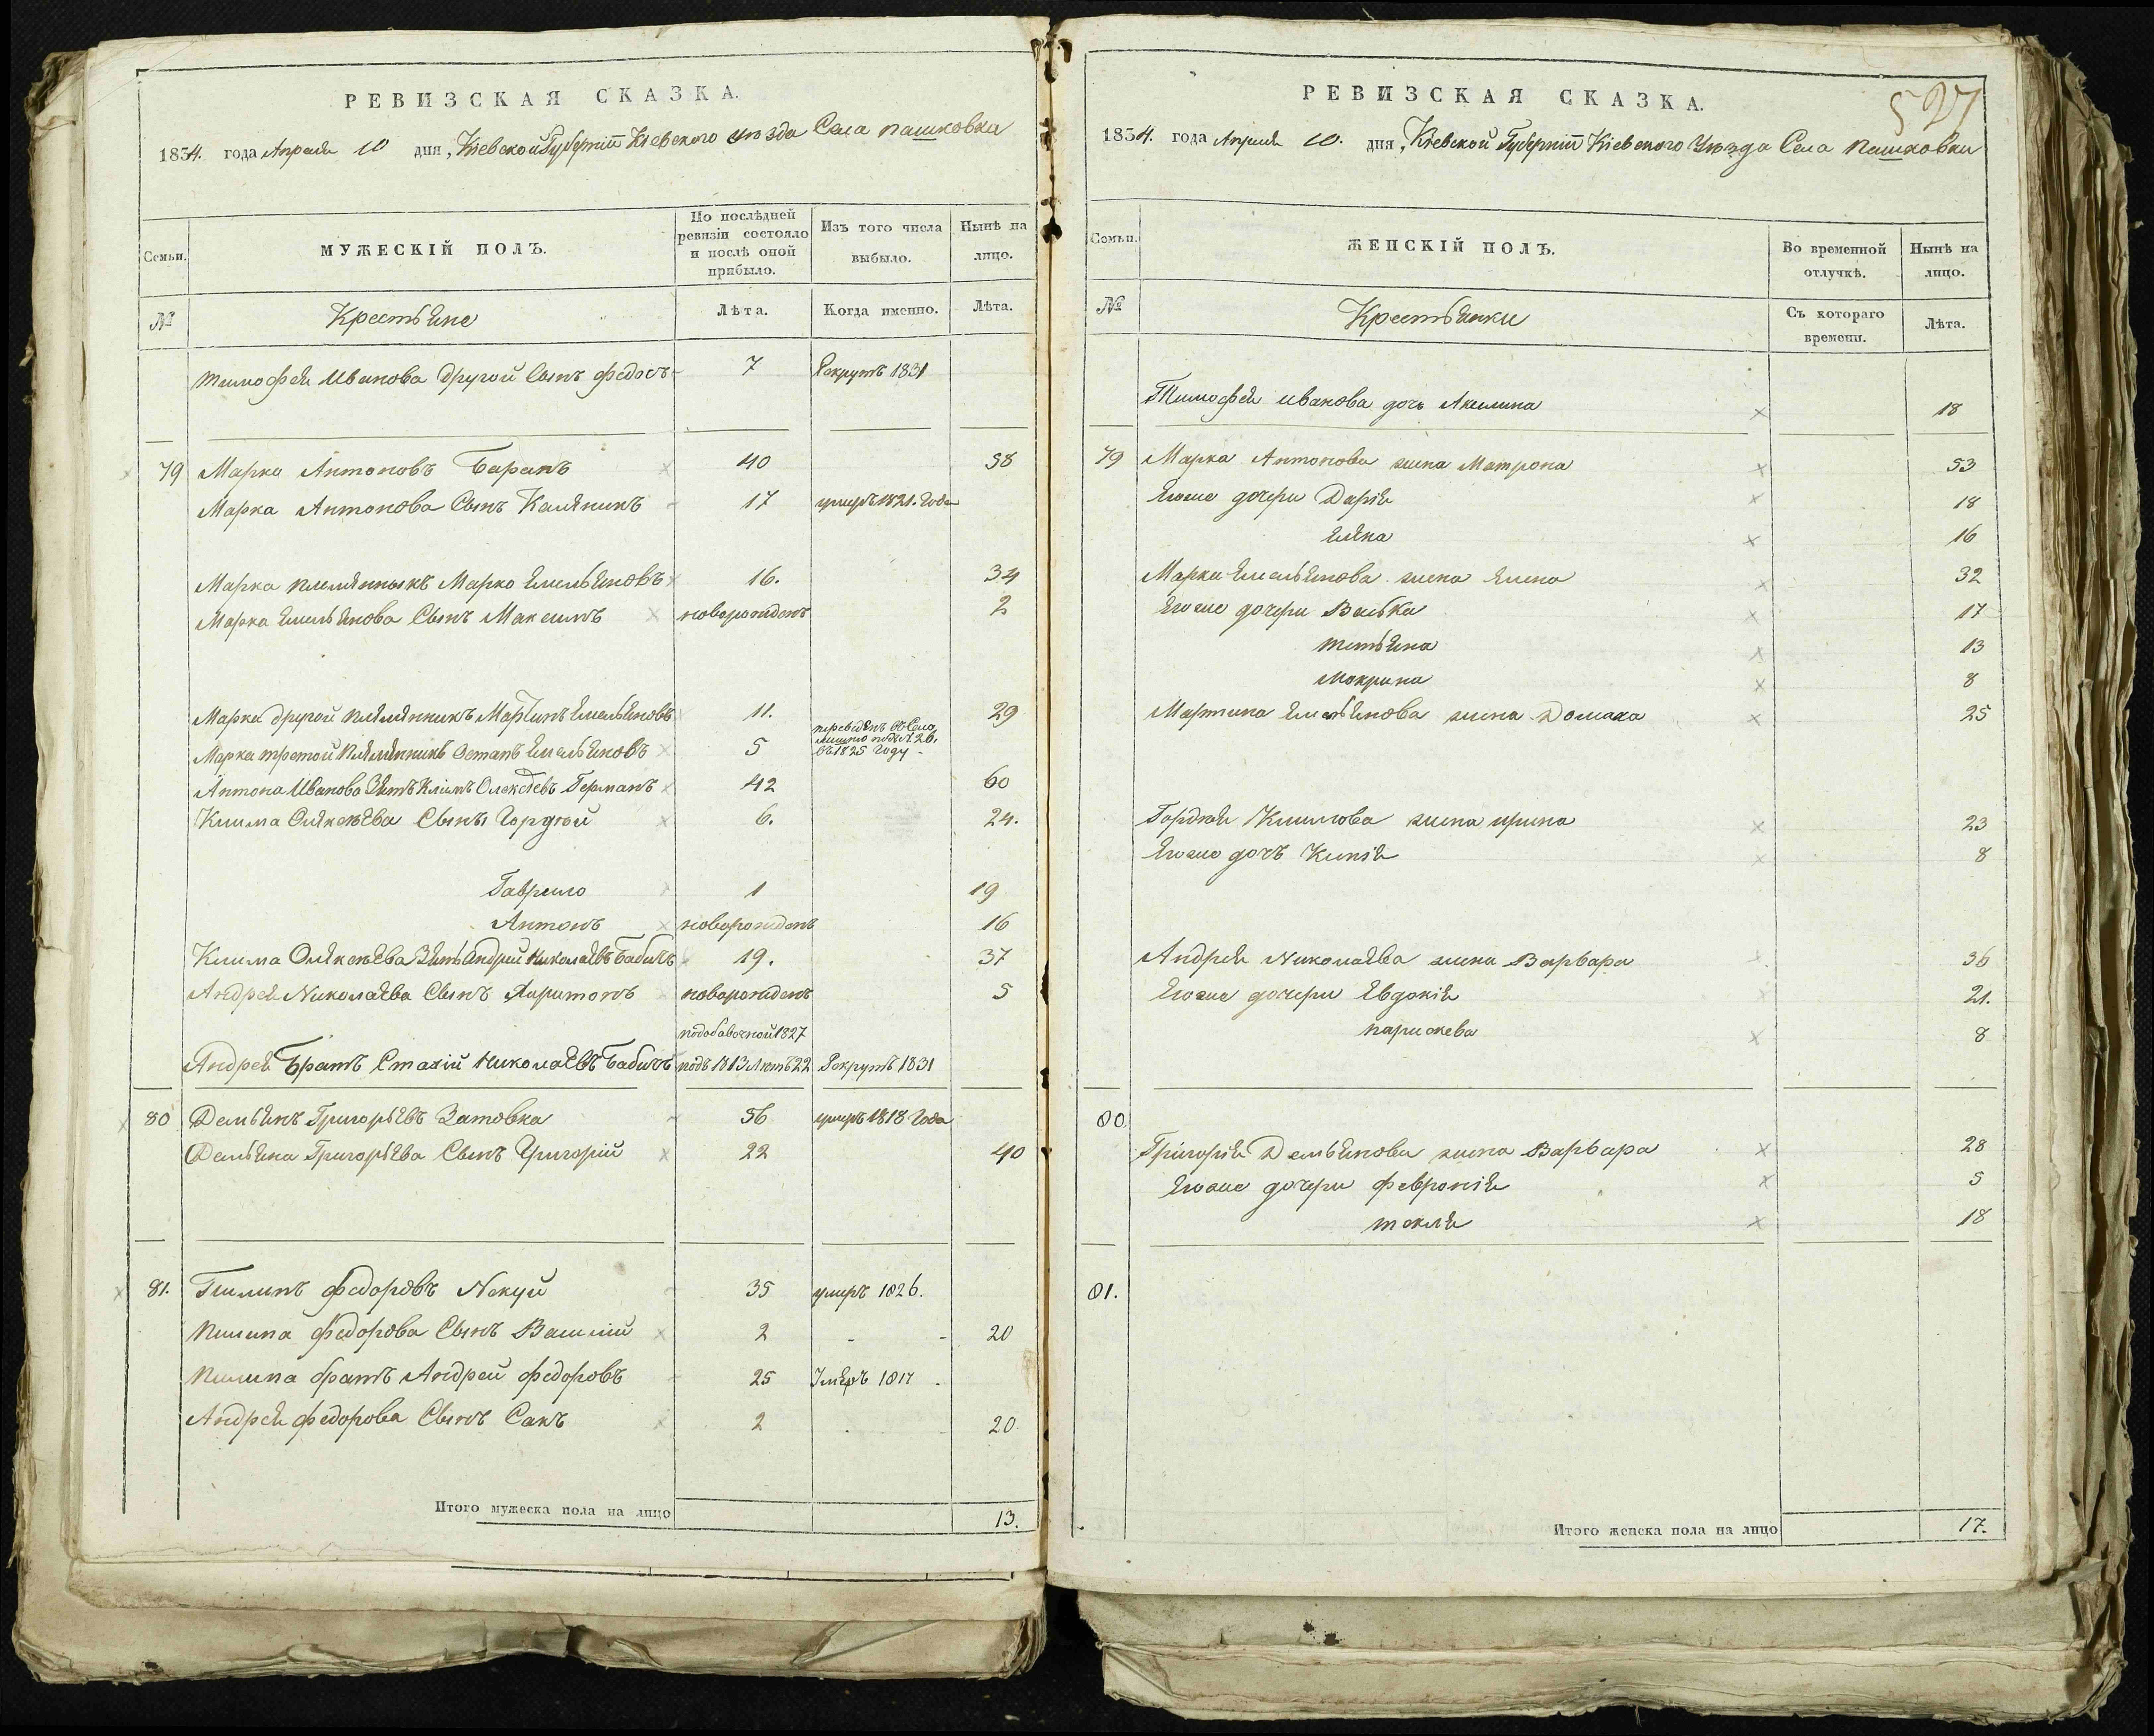 РЕВИЗСКАЯ СКАЗКА.
1834. года Апреля 10 дня, Кіевской Губерніи Кіевского уѣзда Села пашковки
Семьи.
МУЖЕСКІЙ ПОЛЪ.
По послѣдней ревизіи состояло и послѣ оной прибыло.
Изъ того числа выбыло.
Нынѣ на лицо.
№
Крестьяне
Лѣта.
Когда именно.
Лѣта.
тимофея Иванова другой Сынъ федосъ 7 Рекрутъ 1831
79 Марко Антоновъ Баранъ 40 58
Марка Антонова Сынъ Каляникъ 17 умеръ 1821. Года
Марка племянныкъ Марко Емельяновъ 16. 34
Марка Емельянова Сынъ Максимъ новорожденъ 2
Марка другой племянникъ Мартинъ Емельяновъ 11. 29
Марка третой племянникъ Остапъ Емельяновъ 5 переведенъ въ Село подъ № 26, въ 1825 Году
Антона Иванова Зять Климъ Олексѣевъ Германъ 42 60
Клима Олексѣева Сынъ Гордѣй 6. 24.
Гаврило 1 19
Антонъ новорожденъ 16
Клима Олексѣева Зять Андрей Николаевъ Бабичъ 19. 37
Андрея Николаева Сынъ Харитонъ новорожденъ 5
подобавочной 1827
Андрея Братъ Стахій Николаевъ Бабичъ подъ 1813 лѣтъ 22 Рекрутъ 1831
80 Демьянъ Григорьевъ Затовка 56 умеръ 1818 Года
Демьяна Григорьева Сынъ Григорій 22 40
81. Пилипъ федоровъ Некуй 35 умеръ 1826.
пилипа федорова Сынъ Василій 2 - - 20
пилипа братъ Андрей федоровъ 25 Умеръ 1817
Андрея федорова Сынъ Сакъ 2 20
Итого мужеска пола на лицо 13.
527
РЕВИЗСКАЯ СКАЗКА.
1834. года Апреля 10. дня, Кіевской Губерніи Кіевского Уѣзда Села пашковки
Семьи.
ЖЕНСКІЙ ПОЛЪ.
Во временной отлучкѣ.
Нынѣ на лицо.
№
Крестьянки
Съ котораго времени.
Лѣта.
Тимофея иванова дочь Акилина 18
79 Марка Антонова жена Матрона 53
Егоже дочери Дарія 18
Еляна 16
Марка Емельянова жена Елена 32
Егоже дочери Васька 17
тетьяна 13
Мокрина 8
Мартина Емельянова жена Домаха 25
Гордѣя Климова жена ирина 23
Егоже дочъ Килія 8
Андрея Николаева жена Варвара 36
Егоже дочери Евдокія 21.
парискева 8
80.
Григорія Демьянова жена Варвара 28
Егоже дочери февронія 5
текля 18
81.
Итого женска пола на лицо 17.